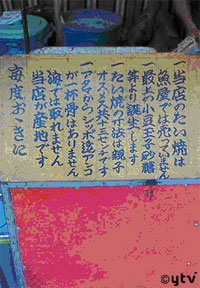 一当店のたい焼は
魚屋では売っていません
一最上の小豆玉子砂糖
等より誕生します
一たい焼の寸法は親子
オスメス共十三センチです
一アタマからシッポ迄アンコ
が一杯骨はありません
海では取れません
当店が産地です
毎度おゝきに
©ytv